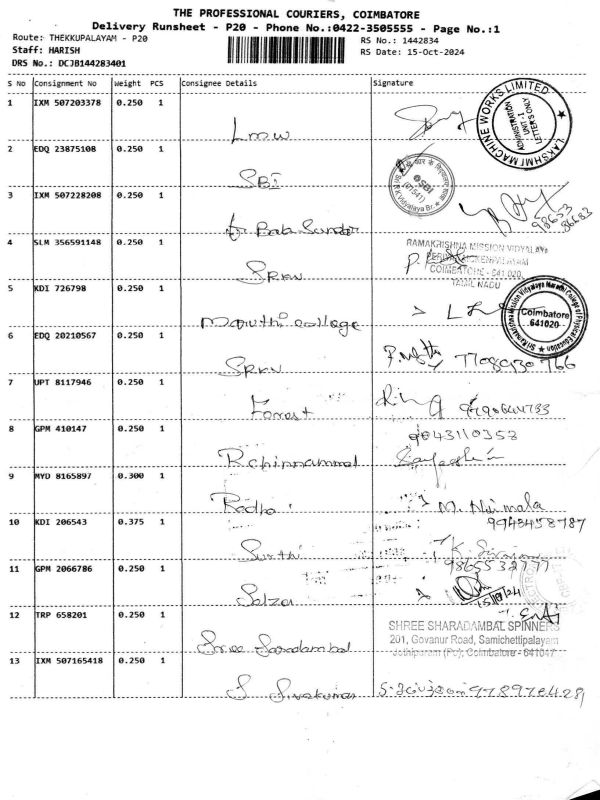 THE PROFESSIONAL COURIERS, COIMBATORE
Delivery Runsheet - P20 - Phone No.:0422-3505555 - Page No.:1
Route: THEKKUPALAYAM - P20
RS No.: 1442834
Staff: HARISH
RS Date: 15-Oct-2024
DRS No.: DCJB144283401
S No Consignment No Weight PCS Consignee Details Signature
1 IXM 507203378 0.250 1
LMW
LAKSHMI MACHINE WORKS LIMITED
ADMINISTRATION
UNIT - I
LETTERS ONLY
2 EDQ 23875108 0.250 1
SBI
SBI
(01541)
3 IXM 507228208 0.250 1
98653
4 SLM 356591148 0.250 1
SRKV
RAMAKRISHNA MISSION VIDYALAYA
COIMBATORE - 641 020
TAMIL NADU
5 KDI 726798 0.250 1
Maruthi college
Sri Ramakrishna Mission Vidyalaya Maruthi College of Physical Education
Coimbatore
641020
6 EDQ 20210567 0.250 1
SRKV
7708930766
7 UPT 8117946 0.250 1
Forest
8 GPM 410147 0.250 1
9043110353
9 MYD 8165897 0.300 1
Radha
M. Nirmala
9943458787
10 KDI 206543 0.375 1
9865532777
11 GPM 2066786 0.250 1
Selzer
15/10/24
12 TRP 658201 0.250 1
Sree Saradambal
SHREE SHARADAMBAL SPINNERS
201, Govanur Road, Samichettipalayam
Jothipuram (Po), Coimbatore - 641047
13 IXM 507165418 0.250 1
S Sivakumar